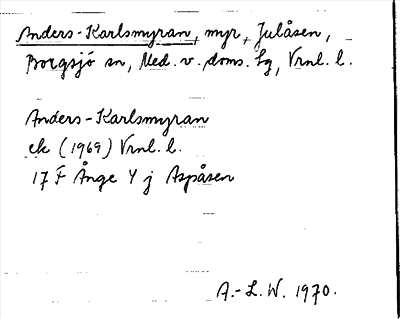 Anders-Karlsmyran, myr, Julåsen,
Borgsjö sn, Med. v. doms. lg, Vrnl. l.
Anders-Karlsmyran
ek (1969) Vrnl. l.
17 F Ånge 4 j Aspåsen
A.-L.W. 1970.